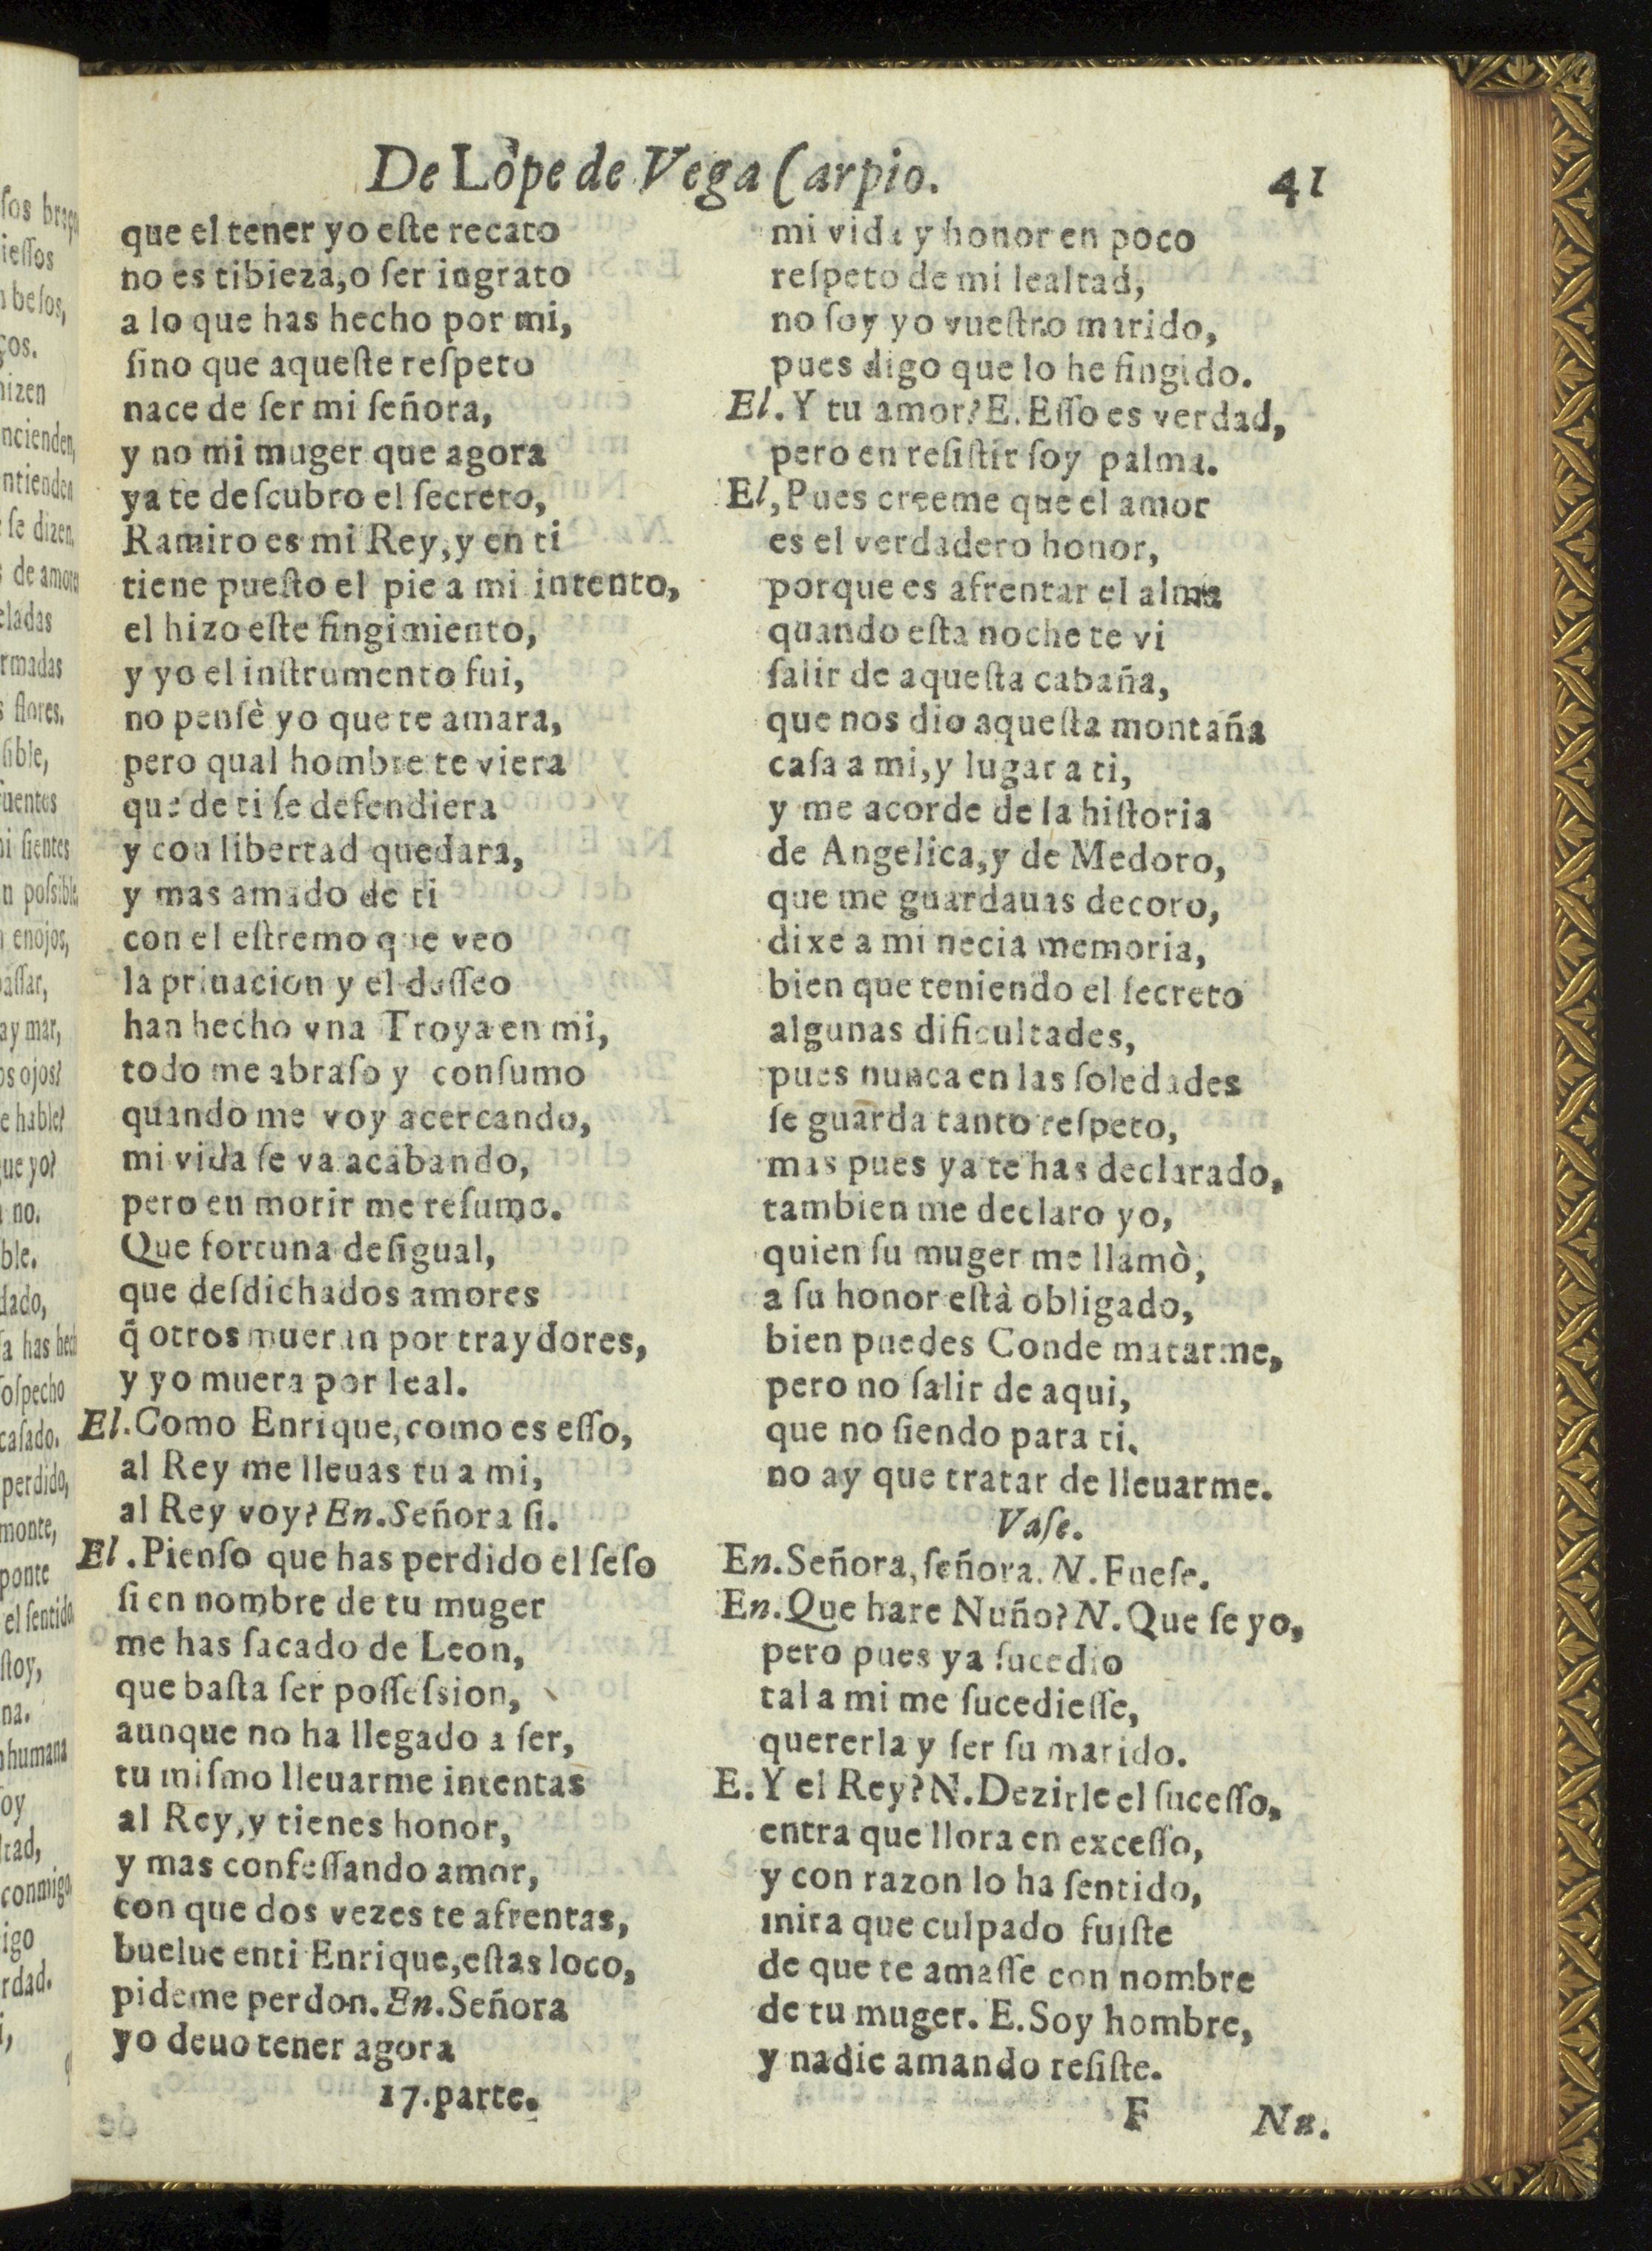 De Lòpe de Vega Carpio. 41
que el tener yo eſte recato
no es tibieza, o ſer ingrato
a lo que has hecho por mi,
ſino que aqueſte reſpeto
nace de ſer mi ſeñora,
y no mi muger que agora
ya te deſcubro el ſecreto,
Ramiro es mi Rey, y en ti
tiene pueſto el pie a mi intento,
el hizo eſte fingimiento,
y yo el inſtrumento fui,
no penſè yo que te amara,
pero qual hombre te viera
que de ti ſe defendiera
y con libertad quedara,
y mas amado de ti
con el eſtremo que veo
la priuacion y el deſſeo
han hecho vna Troya en mi,
todo me abraſo y conſumo
quando me voy acercando,
mi vida ſe va acabando,
pero en morir me reſumo.
Que fortuna deſigual,
que deſdichados amores
q̃ otros mueran por traydores,
y yo muera por leal.
El. Como Enrique, como es eſſo,
al Rey me lleuas tu a mi,
al Rey voy? En. Señora ſi.
El. Pienſo que has perdido el ſeſo
ſi en nombre de tu muger
me has ſacado de Leon,
que baſta ſer poſſeſsion,
aunque no ha llegado a ſer,
tu miſmo lleuarme intentas
al Rey, y tienes honor,
y mas confeſſando amor,
con que dos vezes te afrentas,
buelue enti Enrique, eſtas loco,
pideme perdon. En. Señora
yo deuo tener agora
17. parte.
mi vida y honor en poco
reſpeto de mi lealtad,
no ſoy yo vueſtro marido,
pues digo que lo he fingido.
El. Y tu amor? E. Eſſo es verdad,
pero en reſiſtir ſoy palma.
El, Pues creeme que el amor
es el verdadero honor,
porque es afrentar el alma
quando eſta noche te vi
ſalir de aqueſta cabaña,
que nos dio aqueſta montaña
caſa a mi, y lugar a ti,
y me acorde de la hiſtoria
de Angelica, y de Medoro,
que me guardauas decoro,
dixe a mi necia memoria,
bien que teniendo el ſecreto
algunas dificultades,
pues nunca en las ſoledades
ſe guarda tanto reſpeto,
mas pues ya te has declarado,
tambien me declaro yo,
quien ſu muger me llamò,
a ſu honor eſtà obligado,
bien puedes Conde matarme,
pero no ſalir de aqui,
que no ſiendo para ti.
no ay que tratar de lleuarme.
Vaſe.
En. Señora, ſeñora. N. Fueſe.
En. Que hare Nuño? N. Que ſe yo,
pero pues ya ſucedio
tal a mi me ſucedieſſe,
quererla y ſer ſu marido.
E. Y el Rey? N. Dezirle el ſuceſſo,
entra que llora en exceſſo,
y con razon lo ha ſentido,
mira que culpado fuiſte
de que te amaſſe con nombre
de tu muger. E. Soy hombre,
y nadie amando reſiſte.
F Nu.